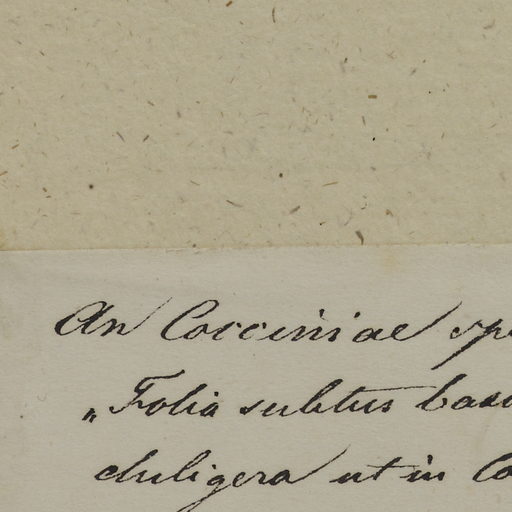 An Cocciniae spe
„Folia subtus basi
duligera ut in Co